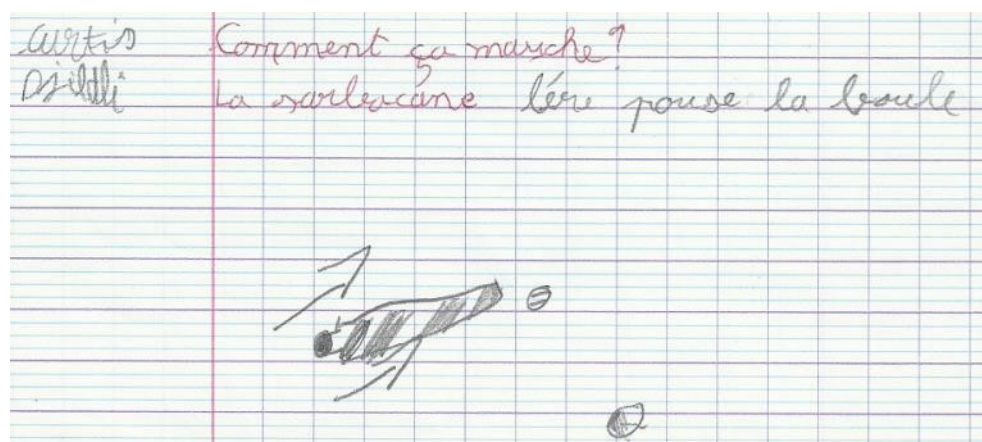 Curtis Comment ça marche?
La sarbacane l'ére pouse la boule